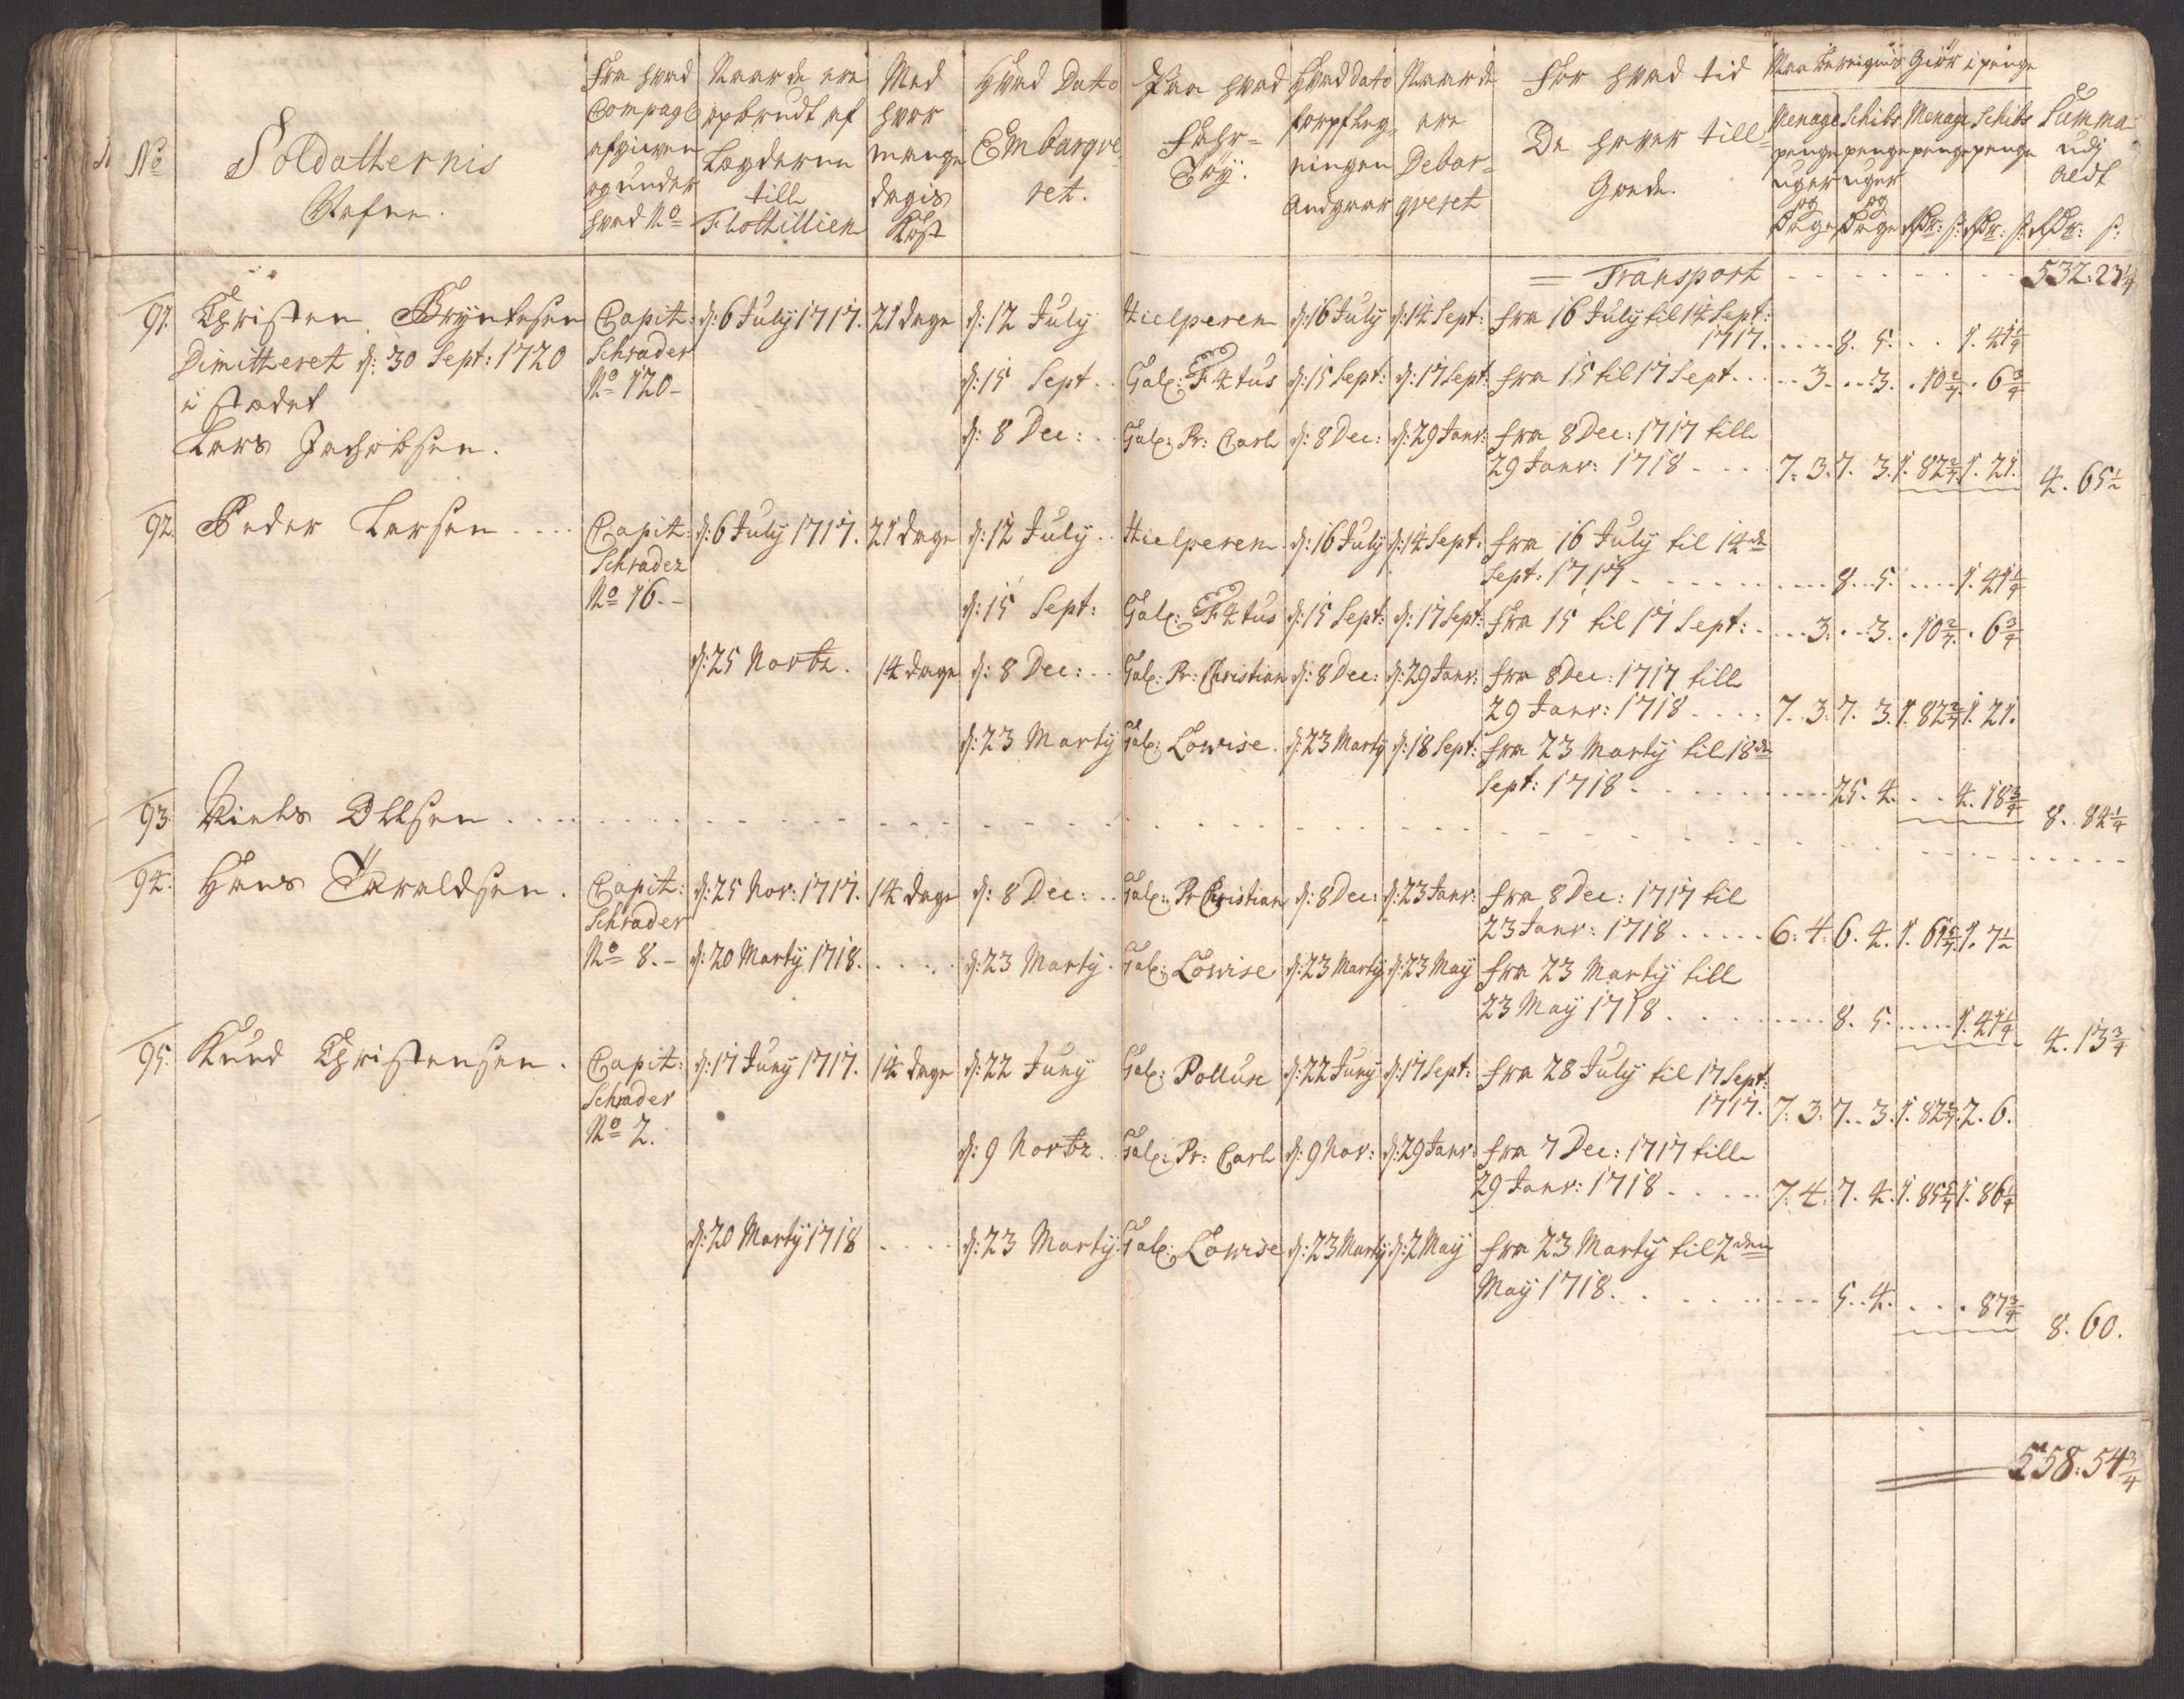 No
Soldatternis
Nafne.
Fra hvad
Compagl
afgiven
og under
hvad No
Naar de ere
opbrudt af
Lægderne
till
Flottillien
Med
hvor
mange
dagis
Kost
Hvad Dato
Embarqve
ret.
Paa hvad
Fahr=
Tøy.
Hvad dato
forpfleg=
ningen
Andgaar
Naar de
ere
Debar=
qveret
For hvad tid
De haver till=
Gode.
Giør i penge
Menage penge uger og Dage
Schibs penge uger og Dage
Menage penge Rdr: s:
Schibs penge Rdr: s:
Summa
udj
aldt
Rdr: s:
= Transport - - - - - 532. 23 1/4
91. Christen Bryntesen Capit: d: 6 July 1717. 21 dage d: 12 July Hielperen d: 16 July d: 14 Sept: fra 16 July til 14 Sept:
Dimitteret d: 30 Sept: 1720 Schrader 1717. . . . . 8. 5. . . 1. 41 1/4
i stædet No 120 - d: 15 Sept . . Gal: F 4tus d: 15 Sept: d: 17 Sept: fra 15 til 17 Sept . . . . 3. . . 3. . 10 2/7. . 6 3/4
Lars Jachobsen. d: 8 Dec: . . Gal: Pr: Carl d: 8 Dec: d: 29 Janr: fra 8 Dec: 1717 till
29 Janr: 1718 - - - - 7. 3. 7. 3. 1. 82 2/7. 1. 21. 4. 65 1/2
92. Peder Larsen - - - Capit: d: 6 July 1717. 21 dage d: 12 July . . Hielperen d: 16 July d: 14 Sept: fra 16 July til 14de
Schrader Sept: 1717 - - - - - 8. . 5. . . . 1. 41 1/4
No 16. - d: 15 Sept: Gal: F 4tus d: 15 Sept: d: 17 Sept: fra 15 til 17 Sept: . . . 3. . . 3. . 10 2/7. . 6 3/4
d: 25 Novbr. 14 dage d: 8 Dec: . . Gal: Pr: Christian d: 8 Dec: d: 29 Janr: fra 8 Dec: 1717 till
29 Janr: 1718 . . . . 7. 3. 7. 3. 1. 82 2/7 1. 21.
d: 23 Marty Gal: Lowise. d: 23 Marty d: 18 Sept: fra 23 Marty til 18de
Sept: 1718 - - - - - 25. 4. . . 4. 18 3/4 8. 84 1/4
93. Niels Ollsen . . . . . .
94. Hans Haraldsen . Capit: d: 25 Nov: 1717. 14 dage d: 8 Dec: . . Gal: Pr Christian d: 8 Dec: d: 23 Janr: fra 8 Dec: 1717 til
Schrader 23 Janr: 1718 . . . . . 6. 4. 6. 4. 1. 61 5/7. 1. 7 1/2
No 8. - d: 20 Marty 1718. . . . . d: 23 Marty . Gal: Lowise d: 23 Marty d: 23 May fra 23 Marty till
23 May 1718 . . . . . 8. 5. . . . . 1. 41 1/4 4. 13 3/4
95. Knud Christensen . Capit: d: 17 Juny 1717. 14 dage d: 22 Juny Gal: Pollux d: 22 Juny d: 17 Sept: fra 28 July til 17 Sept:
Schrader 1717. 7. 3. 7. . 3. 1. 82 2/7. 2. 6.
No 2. d: 9 Novbr . Gal: Pr: Carl d: 9 Nov: d: 29 Janr: fra 7 Dec: 1717 till
29 Janr: 1718 . . . . . 7. 4. 7. 4. 1. 85 5/7 1. 86 1/4
d: 20 Marty 1718 . . . . d: 23 Marty Gal: Lowise d: 23 Marty d: 2 May fra 23 Marty til 2den
May 1718. . . . . . 5. . 4. . . . 87 3/4 8. 60.
558. 54 3/4